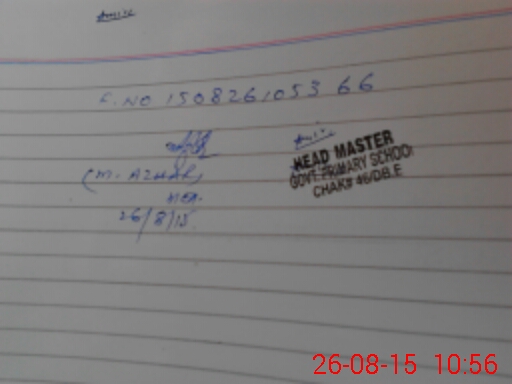 S.NO 150826105366
HEAD MASTER
GOVT. PRIMARY SCHOOL
CHAK# 46/DB.E
(M. AZHAR)
MEA.
26/8/15
26-08-15 10:56